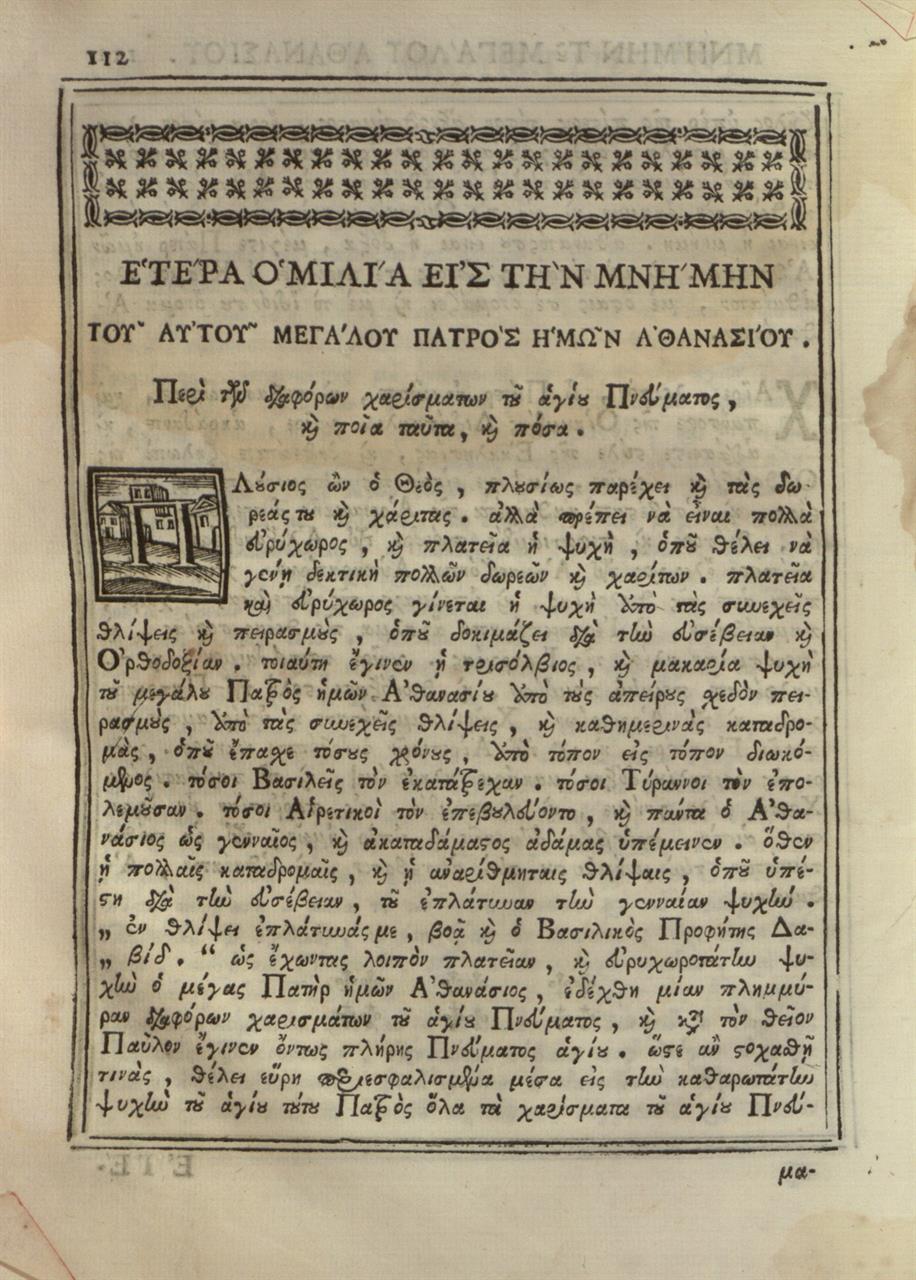 112
ἙΤΈΡΑ ὉΜΙΛΊΑ ΕἸΣ ΤῊΝ ΜΝΉΜΗΝ
ΤΟΥ͂ ΑΥ̓ΤΟΥ͂ ΜΕΓΆΛΟΥ ΠΑΤΡῸΣ ἩΜΩ͂Ν ἈΘΑΝΑΣΊΟΥ.
Περὶ τῶν διαφόρων χαρίσματων τοῦ ἁγίου Πνεύματος,
καὶ ποῖα ταῦτα, καὶ πόσα.
Πλούσιος ὢν ὁ Θεὸς, πλουσίως παρέχει καὶ τὰς δω-
ρεάς του καὶ χάριτας. ἀλλὰ πρέπει νὰ εἶναι πολλὰ
εὐρύχωρος, καὶ πλατεῖα ἡ ψυχὴ, ὁποῦ θέλει νὰ
γενῇ δεκτικὴ πολλῶν δωρεῶν καὶ χαρίτων. πλατεῖα
καὶ εὐρύχωρος γίνεται ἡ ψυχὴ ἀπὸ τὰς συνεχεῖς
θλίψεις καὶ πειρασμοὺς, ὁποῦ δοκιμάζει διὰ τὴν εὐσέβειαν καὶ
Ὀρθοδοξίαν. τοιαύτη ἔγινεν ἡ τρισόλβιος, καὶ μακαρία ψυχὴ
τοῦ μεγάλου Πατρὸς ἡμῶν Ἀθανασίου ἀπὸ τοὺς ἀπείρους σχεδὸν πει-
ρασμοὺς, ἀπὸ τὰς συνεχεῖς θλίψεις, καὶ καθημερινὰς καταδρο-
μὰς, ὁποῦ ἔπασχε τόσους χρόνους, ἀπὸ τόπον εἰς τόπον διωκό-
μενος. τόσοι Βασιλεῖς τὸν ἐκατάτρεχαν. τόσοι Τύραννοι τὸν ἐπο-
λεμοῦσαν. τόσοι Αἱρετικοὶ τὸν ἐπεβουλεύοντο, καὶ πάντα ὁ Ἀθα-
νάσιος ὡς γενναῖος, καὶ ἀκαταδάμαστος ἀδάμας ὑπέμεινεν. ὅθεν
ᾑ πολλαῖς καταδρομαῖς, καὶ ᾑ ἀναρίθμηταις θλίψαις, ὁποῦ ὑπέ-
στη διὰ τὴν εὐσέβειαν, τοῦ ἐπλάτυναν τὴν γενναίαν ψυχήν.
„ ἐν θλίψει ἐπλάτυνάς με, βοᾷ καὶ ὁ Βασιλικὸς Προφήτης Δα-
„ βίδ. “ ὡς ἔχωντας λοιπὸν πλατεῖαν, καὶ εὐρυχωροτάτην ψυ-
χὴν ὁ μέγας Πατὴρ ἡμῶν Ἀθανάσιος, ἐδέχθη μίαν πλημμύ-
ραν διαφόρων χαρισμάτων τοῦ ἁγίου Πνεύματος, καὶ κατὰ τὸν θεῖον
Παῦλον ἔγινεν ὄντως πλήρης Πνεύματος ἁγίου. ὥστε ἂν στοχασθῇ
τινὰς, θέλει εὕρῃ περιεσφαλισμένα μέσα εἰς τὴν καθαρωτάτην
ψυχὴν τοῦ ἁγίου τούτου Πατρὸς ὅλα τὰ χαρίσματα τοῦ ἁγίου Πνεύ-
μα-